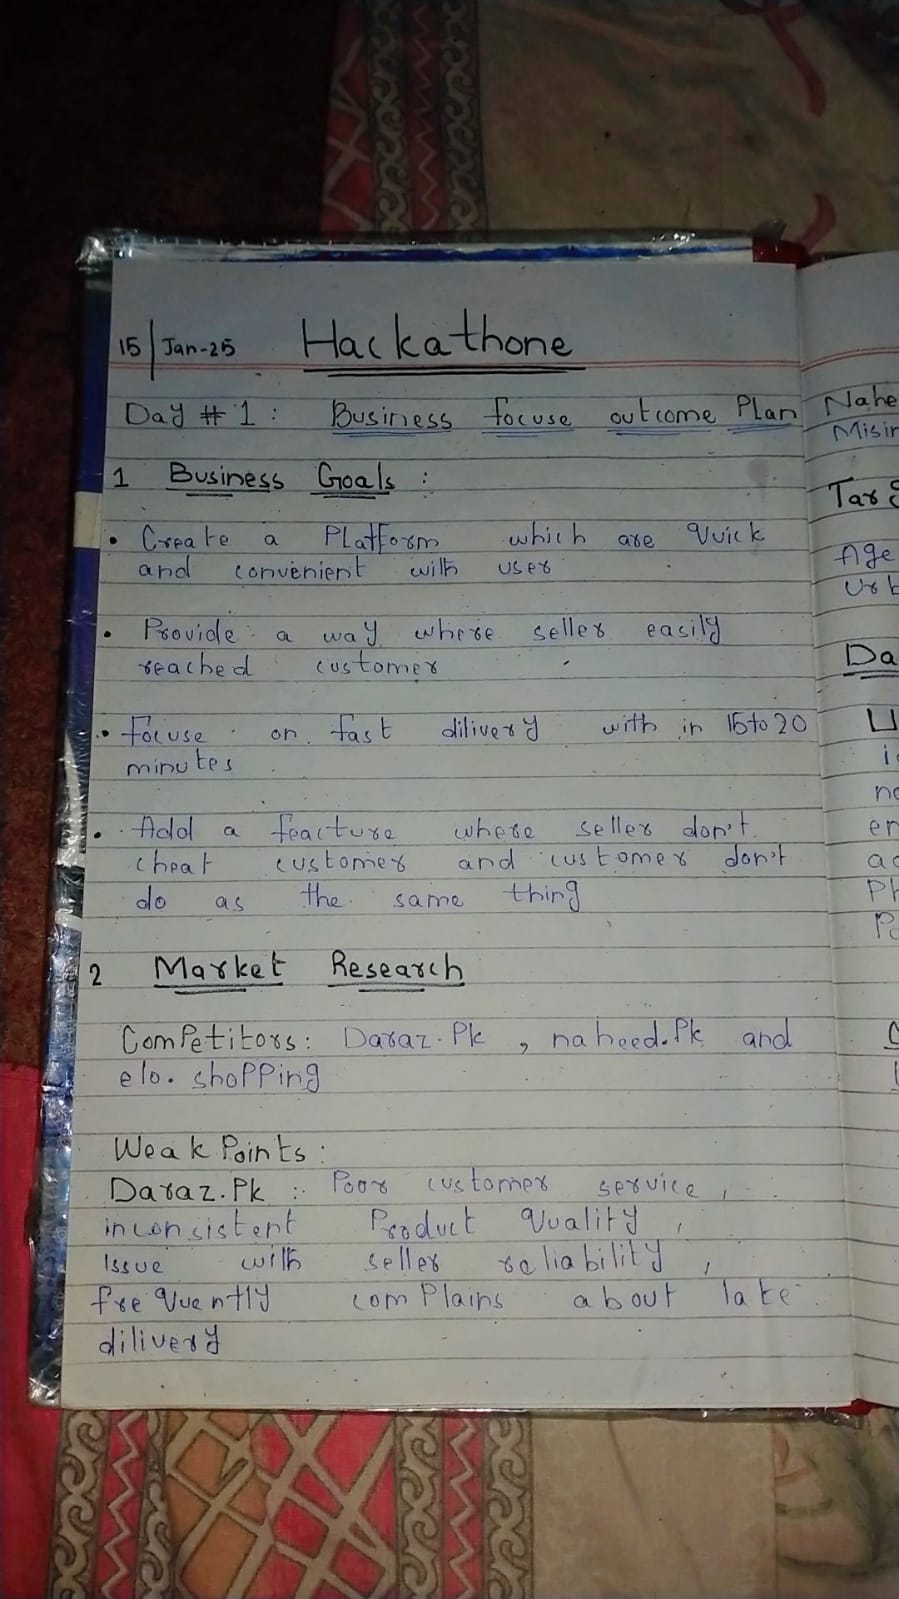 15 Jan-25 Hackathone
Day # 1 : Business focuse outcome Plan
1 Business Goals :
• Create a Platform which are Quick
and convenient with user
• Provide a way where seller easily
reached customer
• Focuse on fast dilivery with in 15 to 20
minutes
• Add a feacture where seller don't
cheat customer and customer don't
do as the same thing
2 Market Research
Competitors: Daraz.Pk , naheed.Pk and
elo. shopping
Weak Points :
Daraz.Pk : Poor customer service ,
inconsistent Product Quality ,
Issue with seller reliability ,
freQuently complains about late
dilivery
Nahe
Misin
Age
Urb
Da